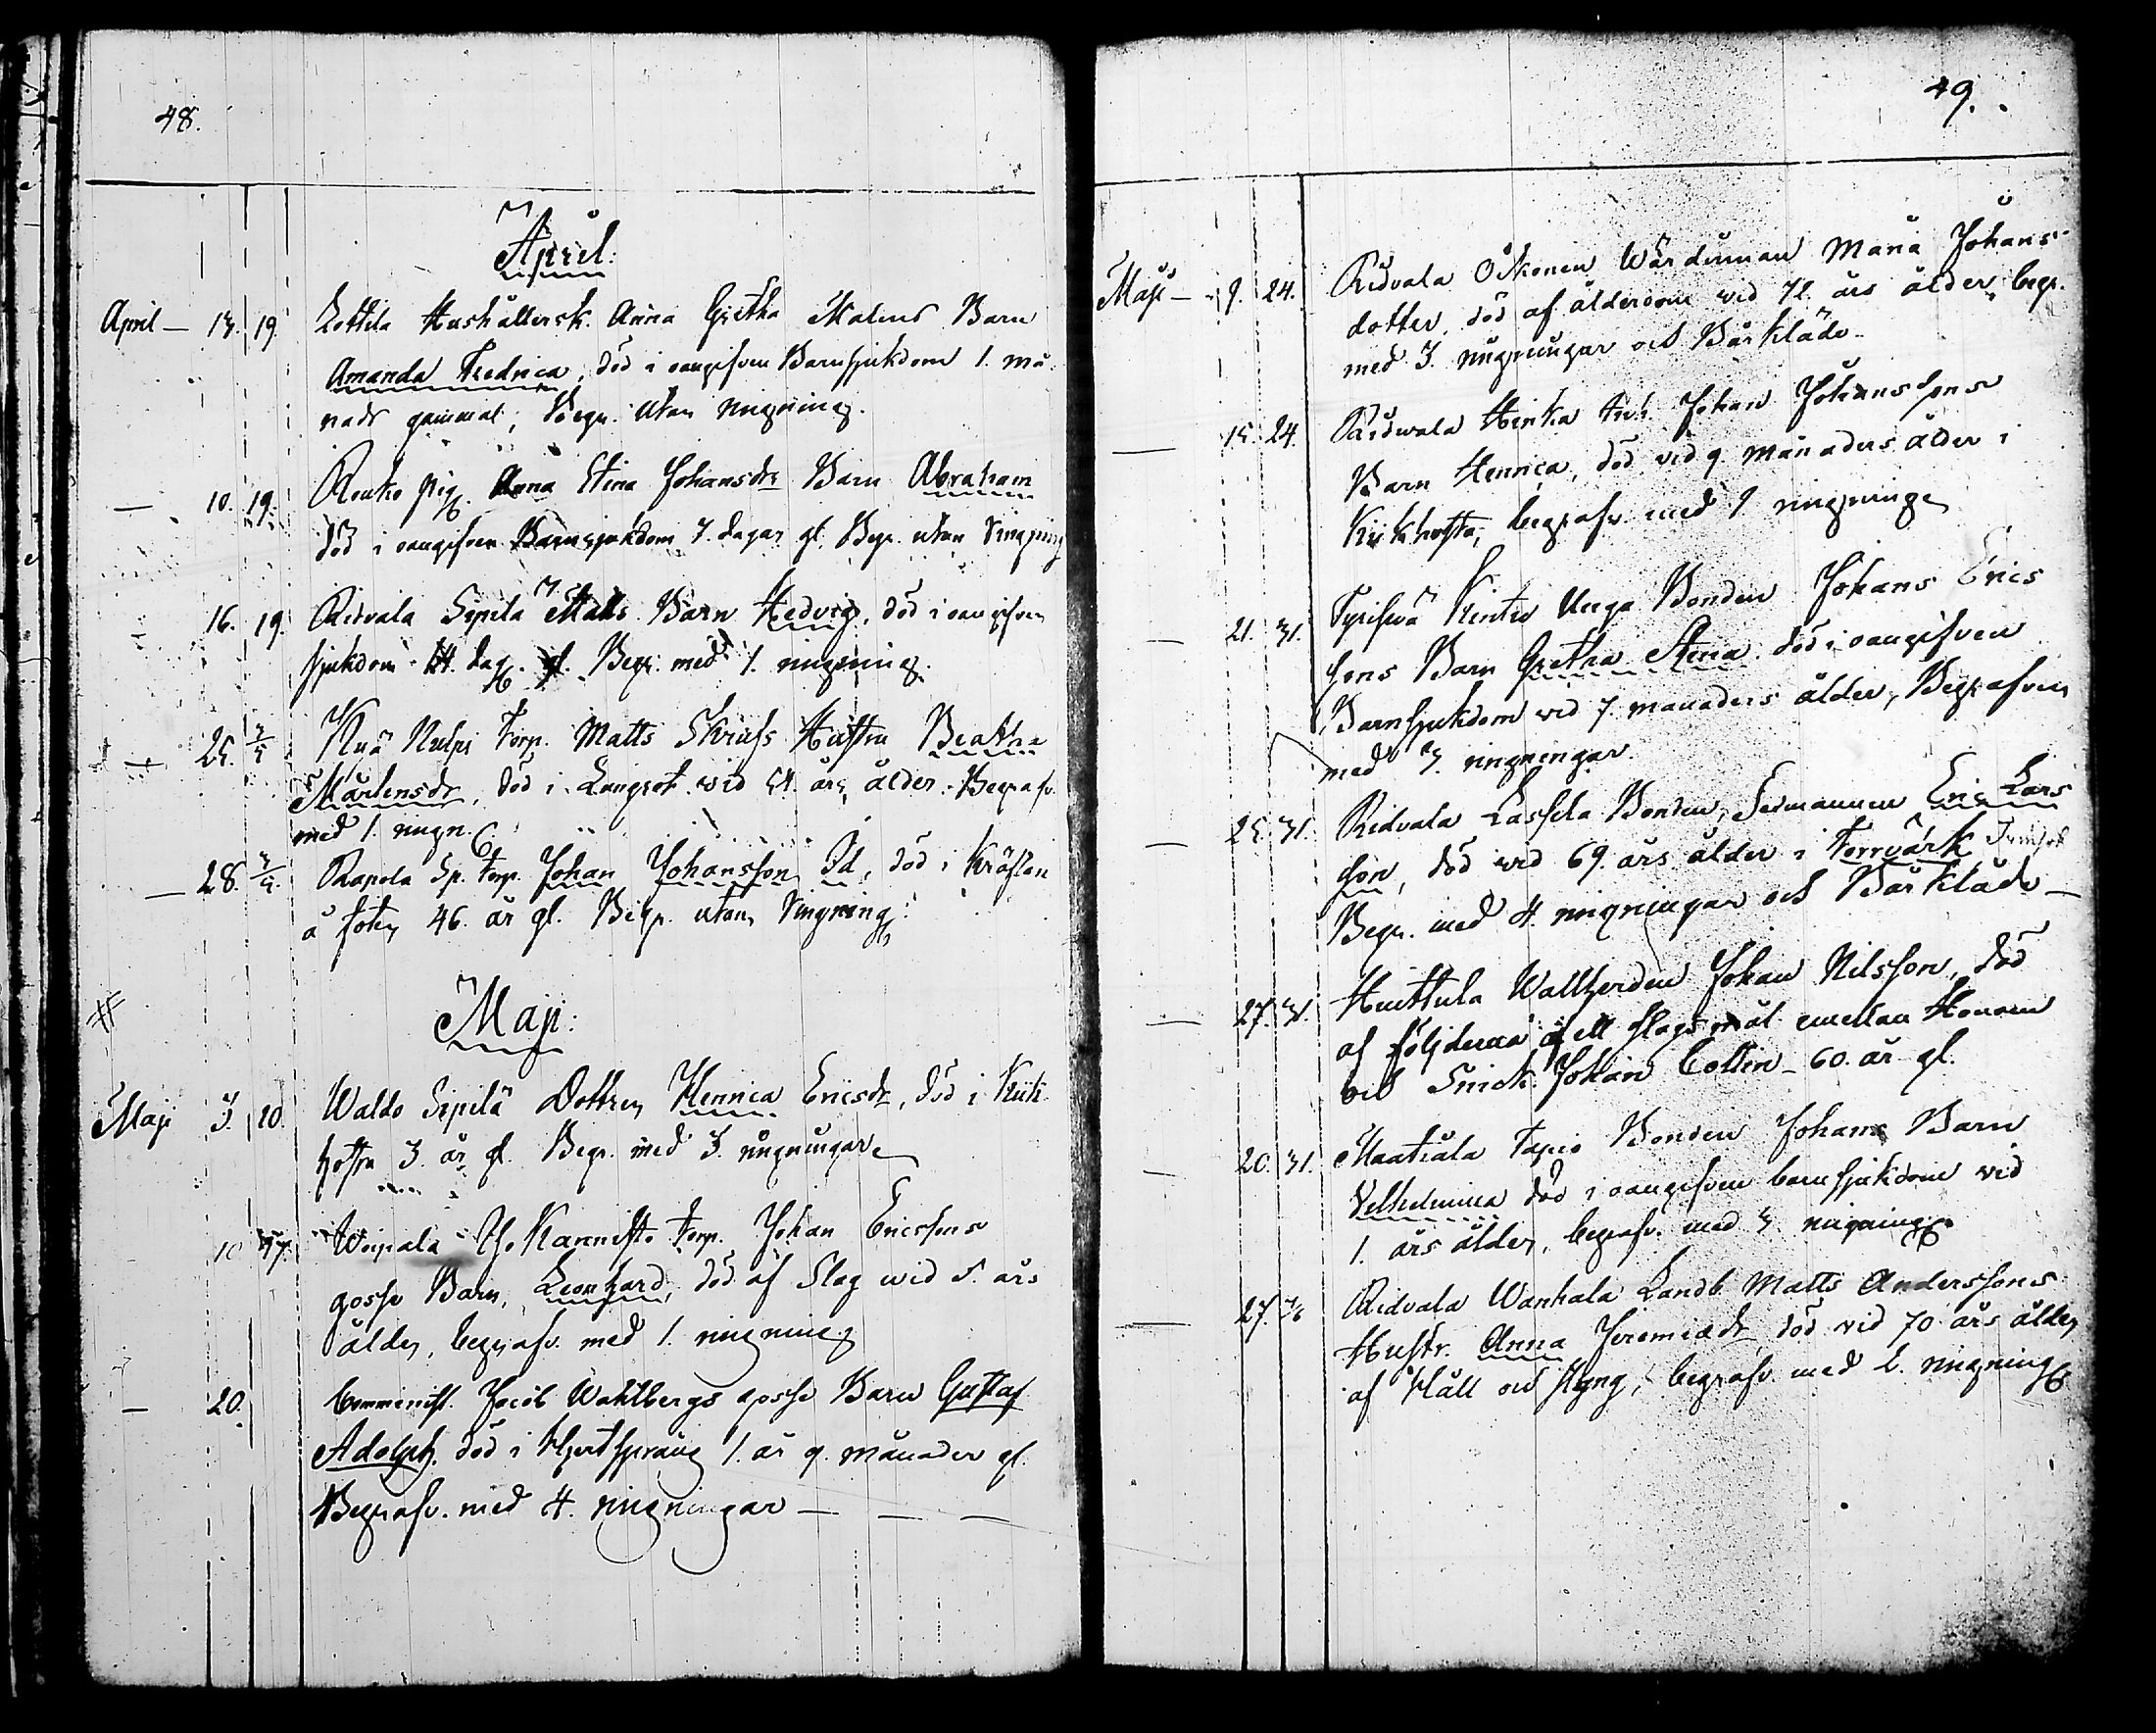 48.
April:
April — 13. 19. Lottila Hushållersk. Anna Gretha Malins Barn
Amanda Fredrica, död i oangifven Barnsjukdom 1. må-
nads gammal; Begr. utan ringning.
— 10. 19. Rouko pig. Anna Stina Johansdr Barn Abraham
död i oangifven Barnsjukdom 7. dagar gl. Begr. utan Ringning
16. 19. Ridvala Sipila Matts Barn Hedvig, död i oangifven
sjukdom 14. dag. gl. Begr. med 1. ringning.
— 25. 3/5 Matts Hustru Beatha
Mårtensdr, död i Lungsot wid 54. års ålder. Begrafv.
med 1. ringn.
— 28. 3/5. Rapola Sp. Torp. Johan Johansson Id, död i Kräftan
å foten 46. år gl. Begr. utan Ringning.
#
Maji:
Maji 3. 10. Waldo Sipilä Dottren Henrica Ericsdr, död i Kik-
hosta 3. år gl. Begr. med 3. ringningar
10 17. Woipala Kannisto Torp. Johan Ericssons
gosse Barn, Leonhard, död af Slag wid 5. års
ålder, begrafv. med 1. ringning
— 20. Comminist. Jacob Wahlbergs gosse Barn Gustaf
Adolph. död i Hjertsprång 1. år 9. månader gl.
Begrafv. med 4. ringningar — — —
49.
Maji — 9. 24. Ridvala Maria Johans-
dotter, död af ålderdom wid 72. års ålder, begr.
med 3. ringningar och Bårkläde
— 15. 24. Ridwala Heikka Johan Johanssons
Barn Henrica, död vid 9. månaders ålder i
Kikhosta, begrafv. med 1 ringning
— 21. 31. Unga Bonden Johans Erics
sons Barn Gretha Stina död i oangifven
Barnsjukdom vid 7. månaders ålder, Begrafven
med 3. ringningar.
— 25. 31. Ridvala Lassila Bonden, Sexmannen Eric Lars
son, död wid 69. års ålder i Torrvärk
Begr. med 4. ringningar och Bårkläde —
— 27. 31. Huittula Wallherden Johan Nilsson, död
af följderna af ett slagsmål emellan Honom
och Snick. Johan Collin — 60. år gl.
— 20. 31. Maatiala Tapio Bonden Johans Barn
Vilhelmina död i oangifven barnsjukdom vid
1. års ålder, begrafv. med 3. ringning.
— 27. 7/6 Ridvala Wanhala Landb. Matts Anderssons
Hustr. Anna Jeremiædr, död vid 70 års ålder
af Håll och Styng, begrafv. med 2. ringning.